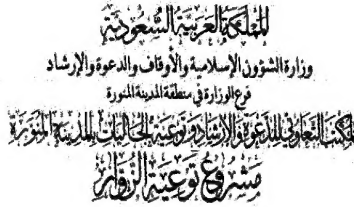 المملكة العربية السعودية
وزارة الشؤون الإسلامية والأوقاف والدعوة والإرشاد
فرع الوزارة في منطقة المدينة المنورة
المكتب التعاوني للدعوة والإرشاد وتوعية الجاليات بالمدينة المنورة
مشروع توعية الزوار